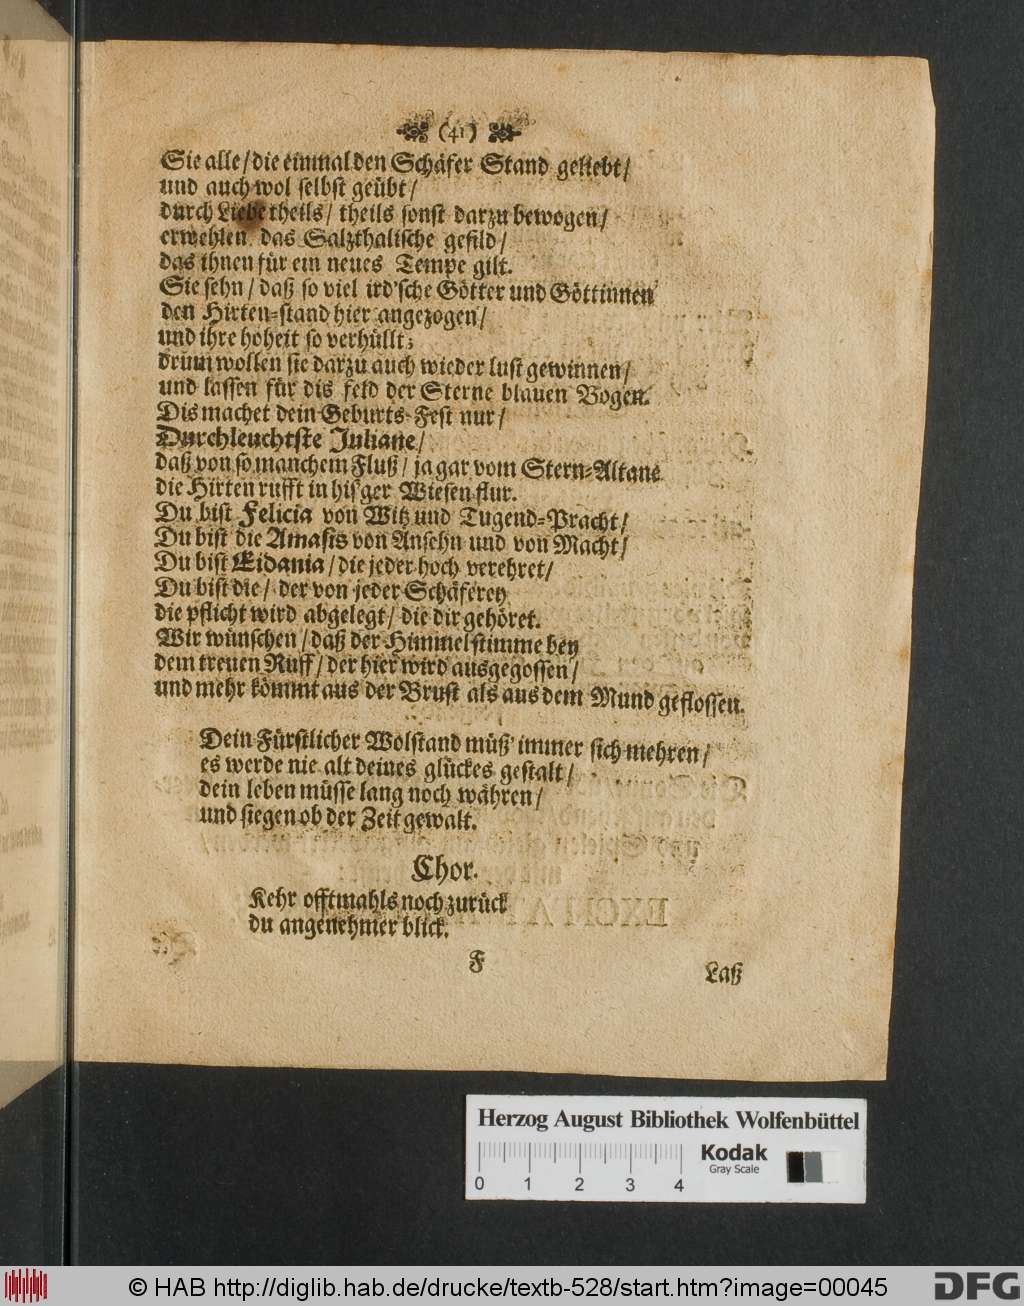 (41)
Sie alle/ die einmal den Schäfer Stand geliebt/
und auch wol selbst geübt/
durch Liebe theils/ theils sonst darzu bewogen/
erwehlen das Salzthalische gefild/
das ihnen für ein neues Tempe gilt.
Sie sehn/ daß so viel ird'sche Götter und Göttinnen
den Hirten-stand hier angezogen/
und ihre hoheit so verhüllt;
drüm wollen sie darzu auch wieder lust gewinnen/
und lassen für dis feld der Sterne blauen Bogen.
Dis machet dein Geburts-Fest nur/
Durchleuchtste Juliane/
daß von so manchem Fluß/ ja gar vom Stern-Altane
die Hirten rufft in his'ger Wiesen flur.
Du bist Felicia von Witz und Tugend-Pracht/
Du bist die Amasis von Ansehn und von Macht/
Du bist Eidania/ die jeder hoch verehret/
Du bist die/ der von jeder Schäferey
die pflicht wird abgelegt/ die dir gehöret.
Wir wünschen/ daß der Himmel stimme bey
dem treuen Ruff/ der hier wird ausgegossen/
und mehr kömmt aus der Brust als aus dem Mund geflossen.
Dein Fürstlicher Wolstand müß' immer sich mehren/
es werde nie alt deines glückes gestalt/
dein leben müsse lang noch währen/
und siegen ob der Zeit gewalt.
Chor.
Kehr offtmahls noch zurück
du angenehmer blick.
F
Laß
Herzog August Bibliothek Wolfenbüttel
Kodak
Gray Scale
0 1 2 3 4
© HAB http://diglib.hab.de/drucke/textb-528/start.htm?image=00045
DFG